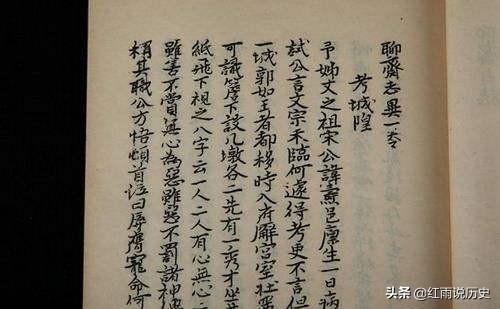 聊齋志異一
考城隍
予姊丈之祖宋公諱燾邑廩生一日病
試公言文宗未臨何遽得考吏不言但
一城郭如王者都移時入府廨宮室壯
可識簷下設几墩各二先有一秀才坐
紙飛下視之八字云一人二人有心無心
雖善不賞無心為惡雖惡不罰諸神
稱其職公方悟頓首泣曰辱膺寵命何
头条 @红雨说历史